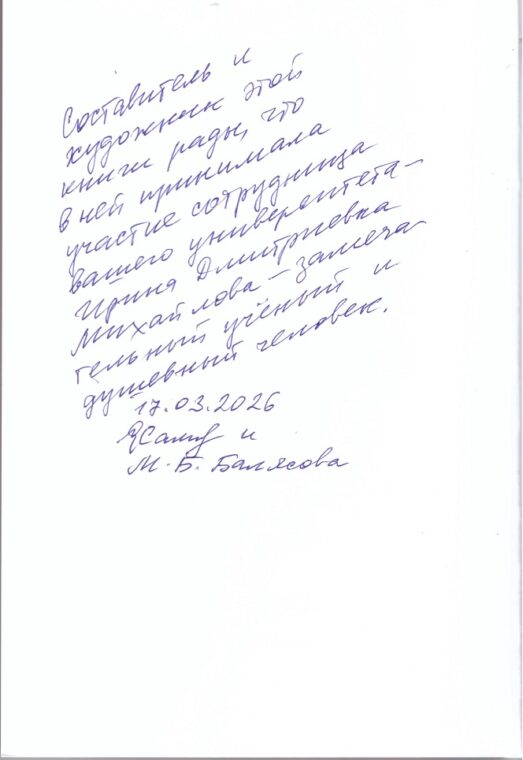 Составитель и
художник этой
книги рады, что
в ней принимала
участие сотрудница
Вашего университета –
Ирина Дмитриевна
Михайлова – замеча-
тельный учёный и
душевный человек.
17.03.2026
и
М.Б. Балясова